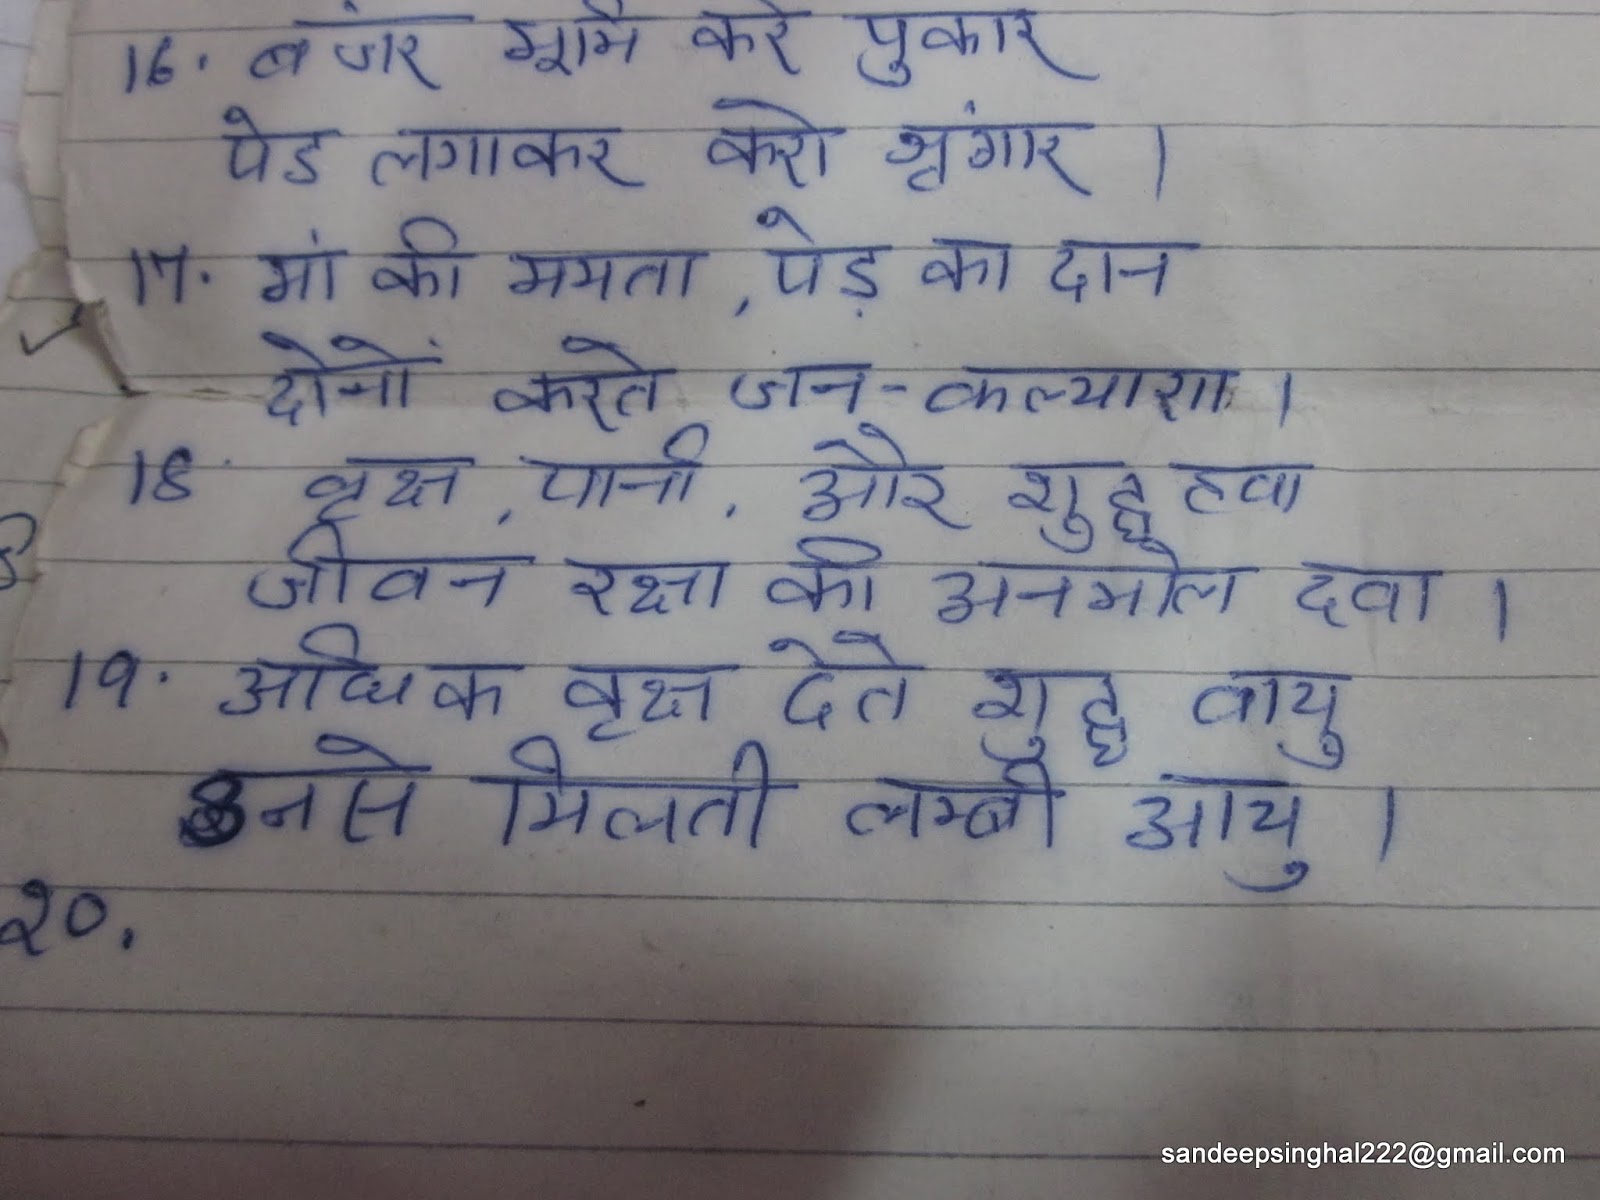 16. बंजर भूमि करे पुकार
पेड लगाकर करो श्रृंगार ।
17. मां की ममता , पेड़ का दान
दोनों करते जन-कल्याण ।
18 वृक्ष , पानी , और शुद्ध हवा
जीवन रक्षा की अनमोल दवा ।
19. अधिक वृक्ष देते शुद्ध वायु
उनसे मिलती लम्बी आयु ।
२०.
sandeepsinghal222@gmail.com